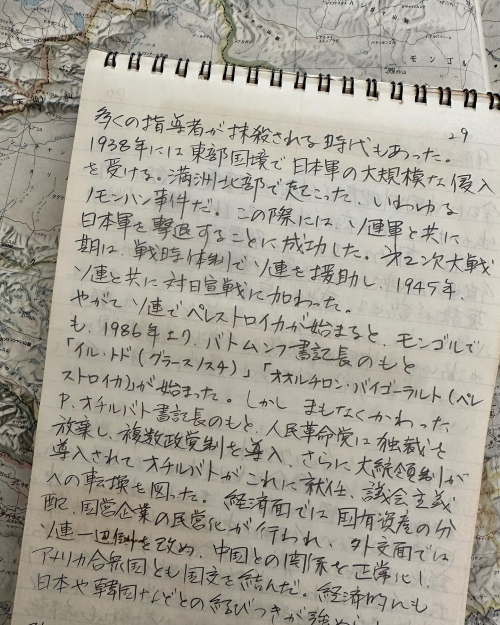 モンゴル
29
多くの指導者が抹殺される時代もあった。
1938年には東部国境で日本軍の大規模な侵入
を受ける。満洲北部で起こった、いわゆる
ノモンハン事件だ。この際には、ソ連軍と共に
日本軍を撃退することに成功した。第2次大戦
期は、戦時体制でソ連を援助し、1945年、
ソ連と共に対日宣戦に加わった。
やがてソ連でペレストロイカが始まると、モンゴルで
も、1986年より、バトムンフ書記長のもと
「イル・トド(グラースノスチ)」「オオルチロン・バイゴーラルト(ペレ
ストロイカ)」が始まった。しかしまもなくかわった
P.オチルバト書記長のもと、人民革命党は独裁を
放棄し、複数政党制を導入、さらに大統領制が
導入されてオチルバトがこれに就任、議会主義
への転換を図った。経済面では国有資産の分
配、国営企業の民営化が行われ、外交面では
ソ連一辺倒を改め、中国との関係を正常化し、
アメリカ合衆国とも国交を結んだ。経済的にも
日本や韓国などとの結びつきが強め